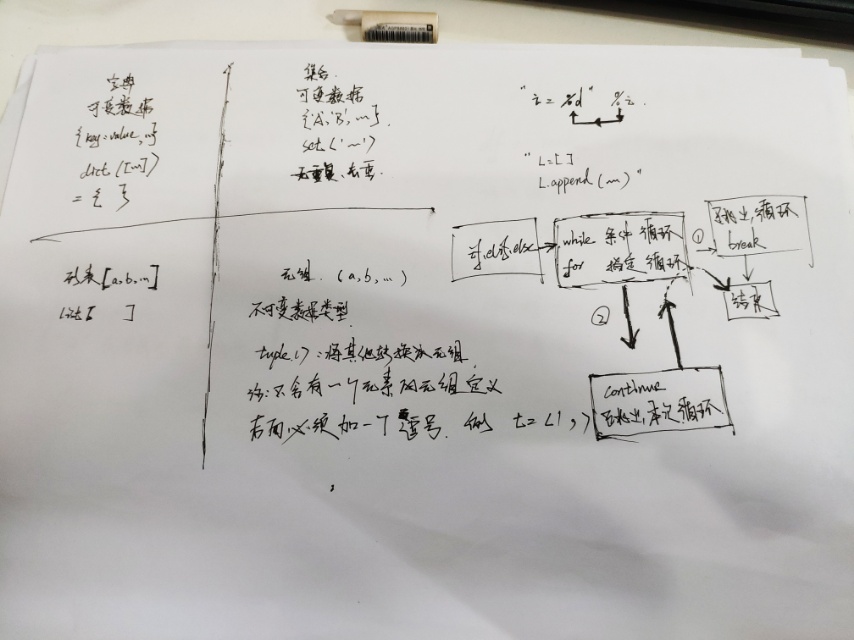 字典
可变数据
{key:value,…}
dict([…])
= { }
集合.
可变数据
{'A','B',…}.
set('~')
无重复、去重
"i=%d" %i.
"L=[]
L.append(…)"
if,elif,else
while 条件 循环
for 指定 循环
①
跳出,循环
break
结束
②
continue
跳出,本次循环
列表[a,b,…]
List[ ]
元组.(a,b,…)
不可变数据类型
tuple():将其他转换为元组
注:只含有一个元素的元组定义
后面,必须加一个逗号. 例 t=(1,)